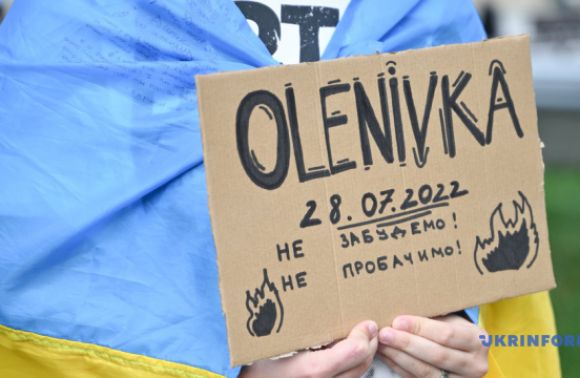 RT
OLENIVKA
28.07.2022
НЕ ЗАБУДЕМО!
НЕ ПРОБАЧИМО!
UKRINFORM